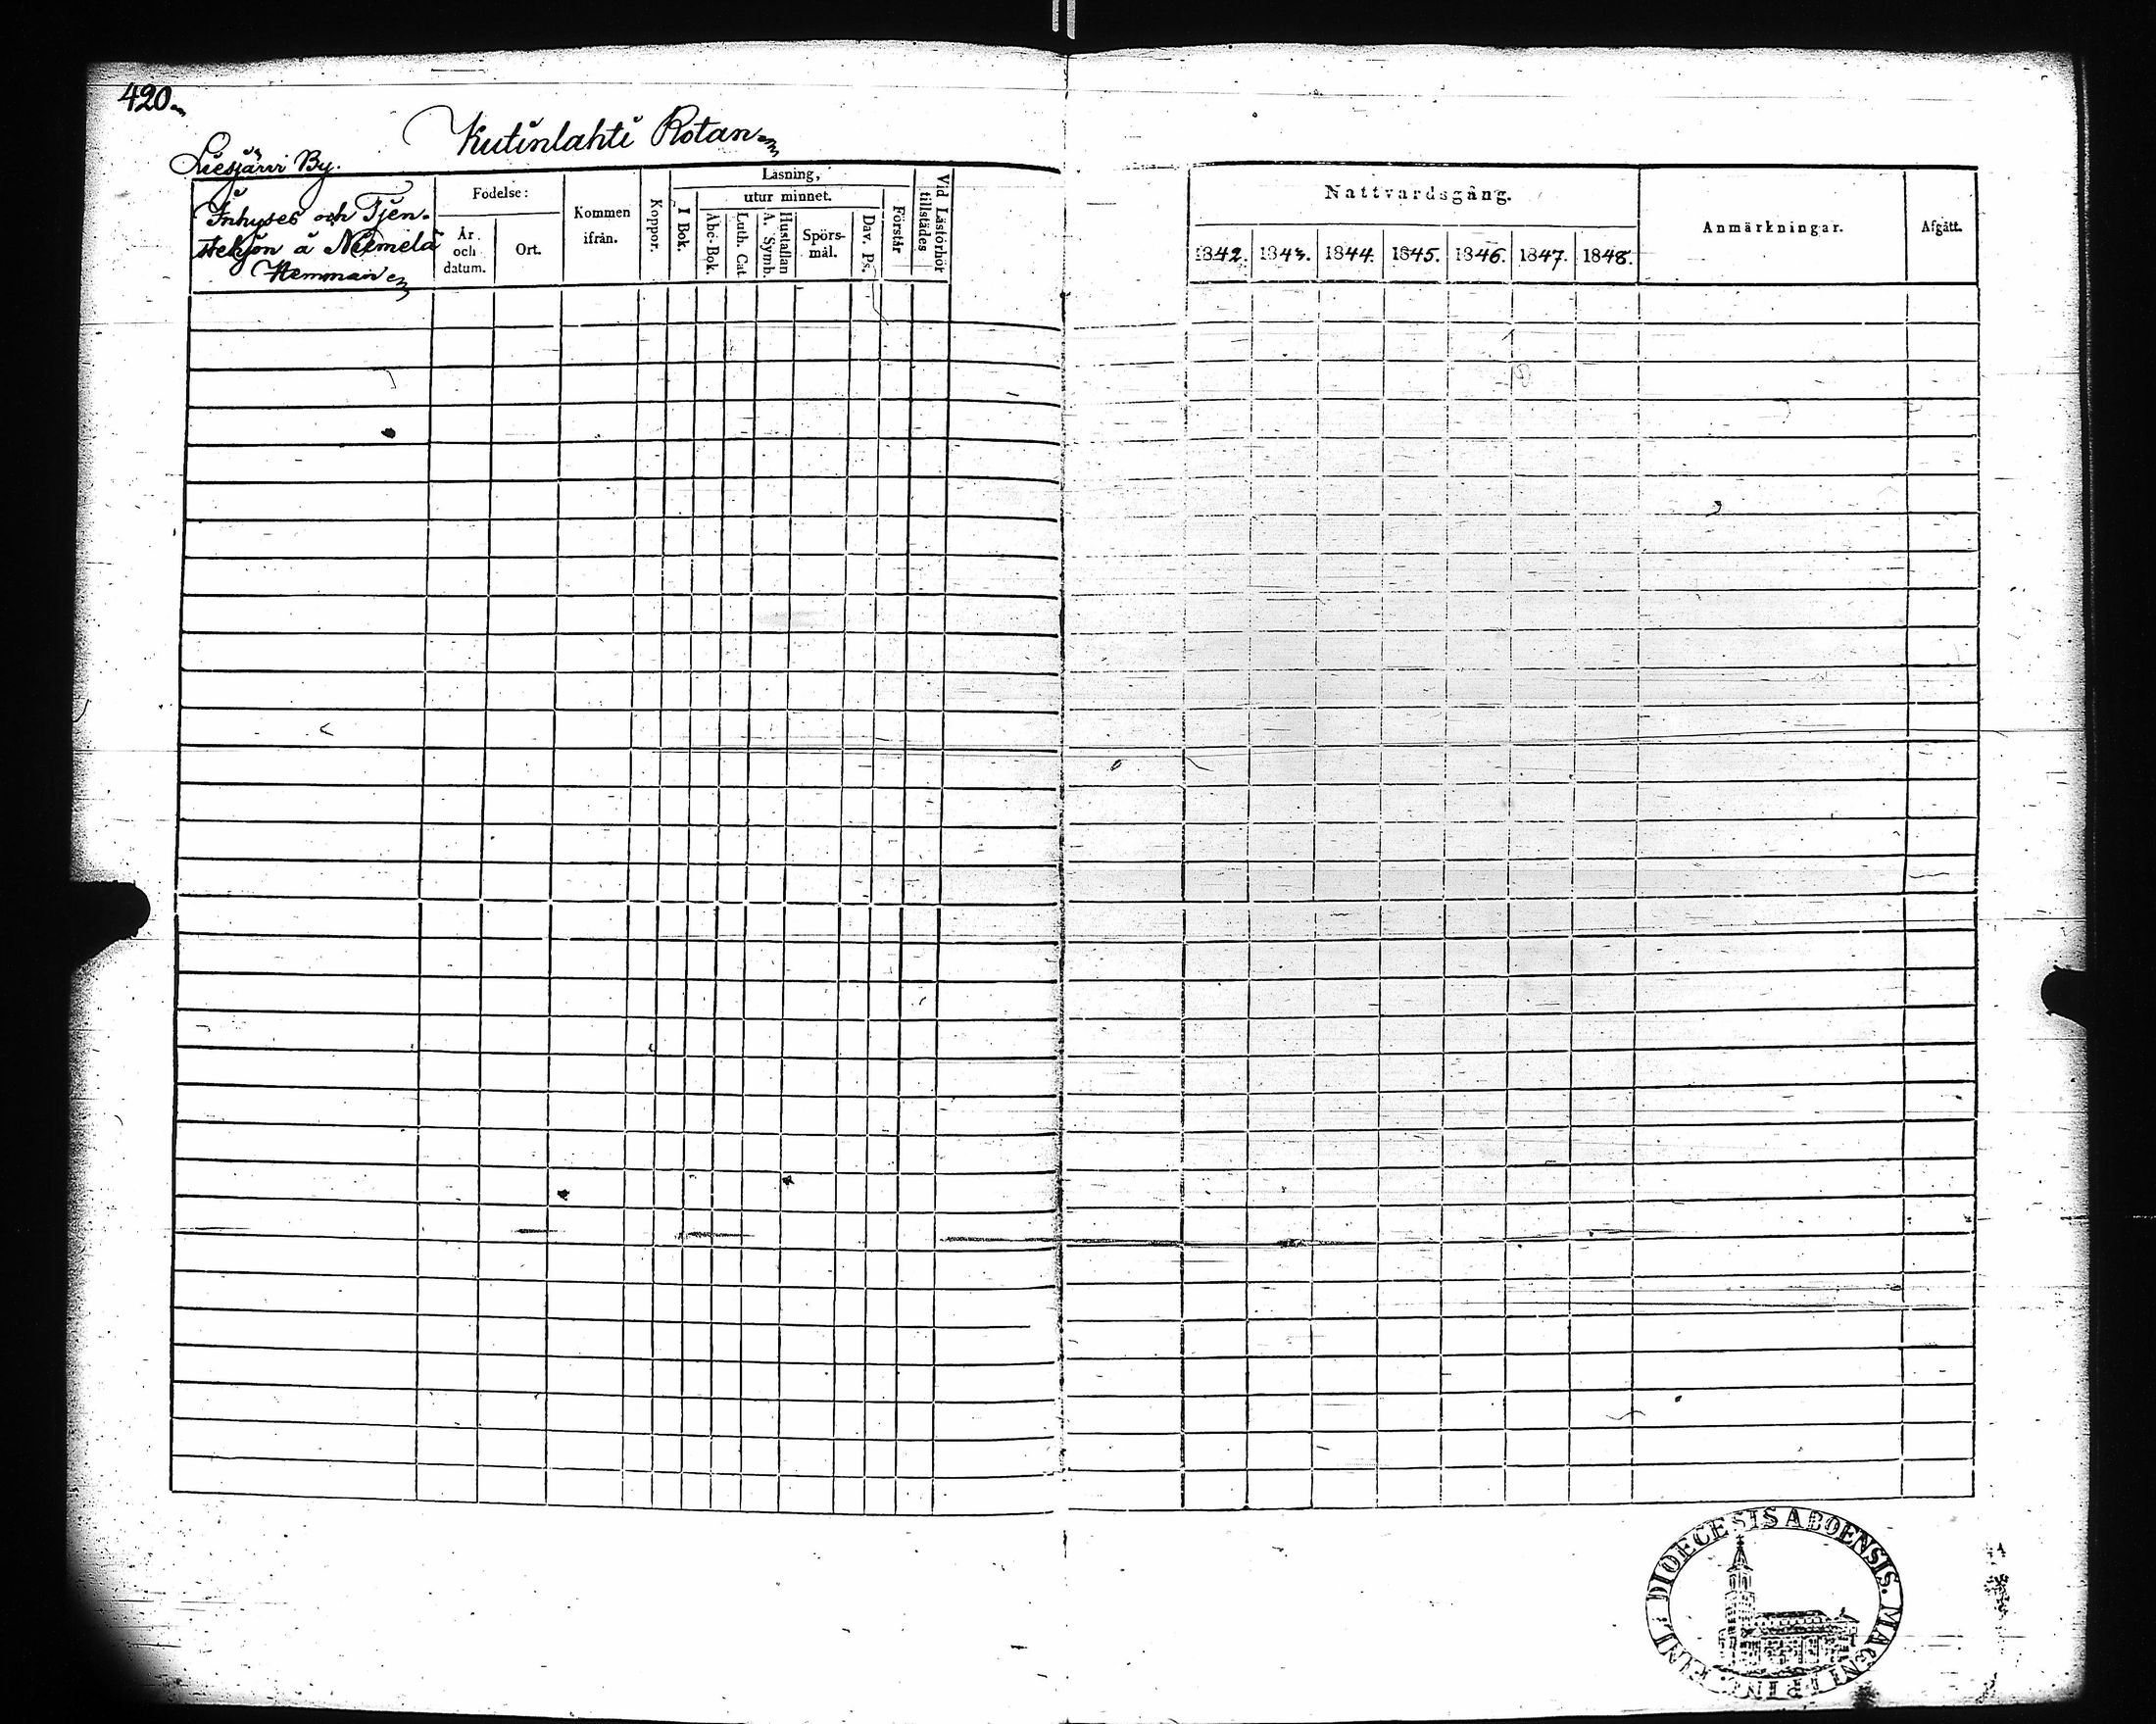 420.
Kutinlahti Rotan
Liesjärvi By.
Inhyses och Tjen-
stehjon å Niemelä
Hemman
Födelse:
År och datum.
Ort.
Kommen ifrån.
Koppor.
Läsning,
I Bok.
utur minnet.
Abc-Bok.
Luth. Cat.
A. Symb.
Hustaflan
Spörs-mål.
Dav. Ps.
Förstår
Vid Läsförhör tillstädes
Nattvardsgång.
1842. 1843. 1844. 1845. 1846. 1847. 1848.
Anmärkningar.
Afgått.
DIOECESIS ABOENSIS. MAGNI PRINC. FINL: